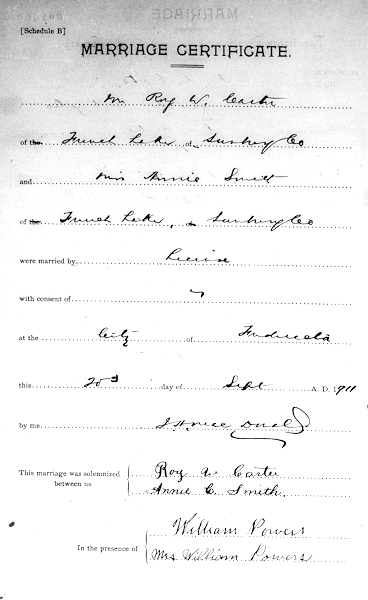 [Schedule B]
MARRIAGE CERTIFICATE.
Mr Roy W. Carter
of the French Lake of Sunbury Co
and Miss Annie Smith
of the French Lake, Sunbury Co
were married by License
with consent of
at the City of Fredericton
this 20 day of Sept A. D. 1911
by me
This marriage was solemnized between us
Roy W Carter
Annie C. Smith.
In the presence of
William Powers
Mrs William Powers